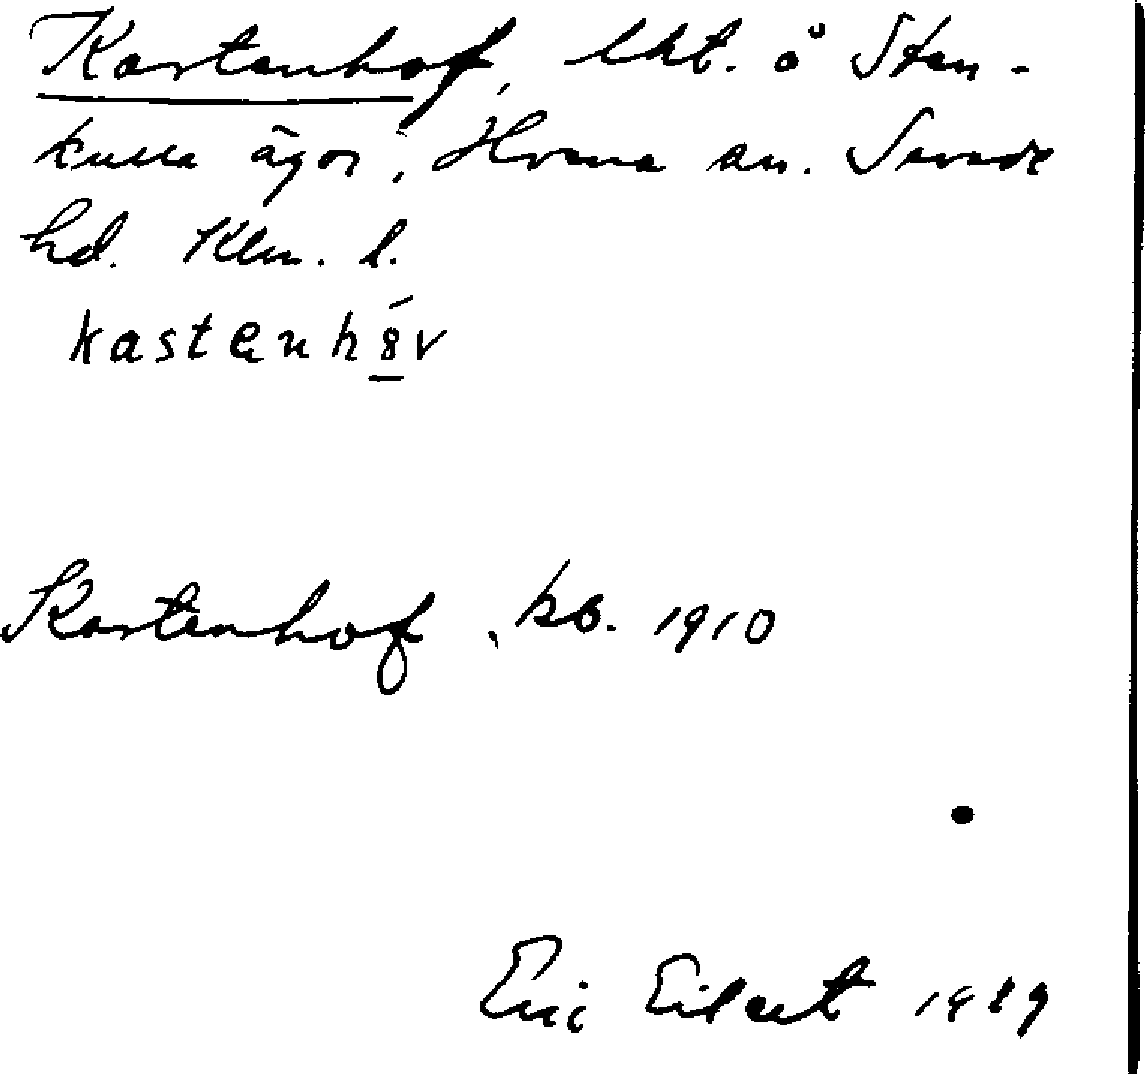 Kastenhof, lht. å Sten-
kulla ägor, Hvena sn. Sevede
hd. Klm. l.
kastenh8́v
Kastenhof, kb. 1910
Eric Eilert